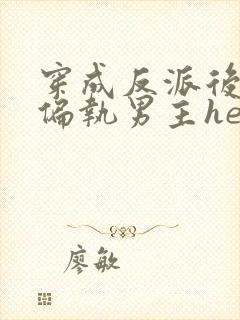 穿成反派後
偏執男主he
廖敏